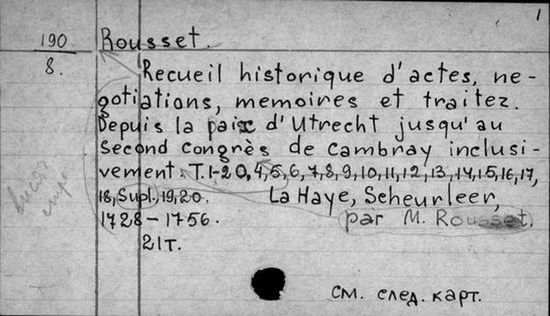 1
190
8.
Rousset.
Recueil historique d'actes, ne-
gotiations, memoires et traitez.
Depuis la paix d'Utrecht jusqu'au
second congrès de Cambray inclusi-
vement. T. 1-20, 4, 5, 6, 7, 8, 9, 10, 11, 12, 13, 14, 15, 16, 17,
18, Supl., 19, 20. La Haye, Scheurleer,
1728-1756. par M. Rousset.
21т.
см. след. карт.